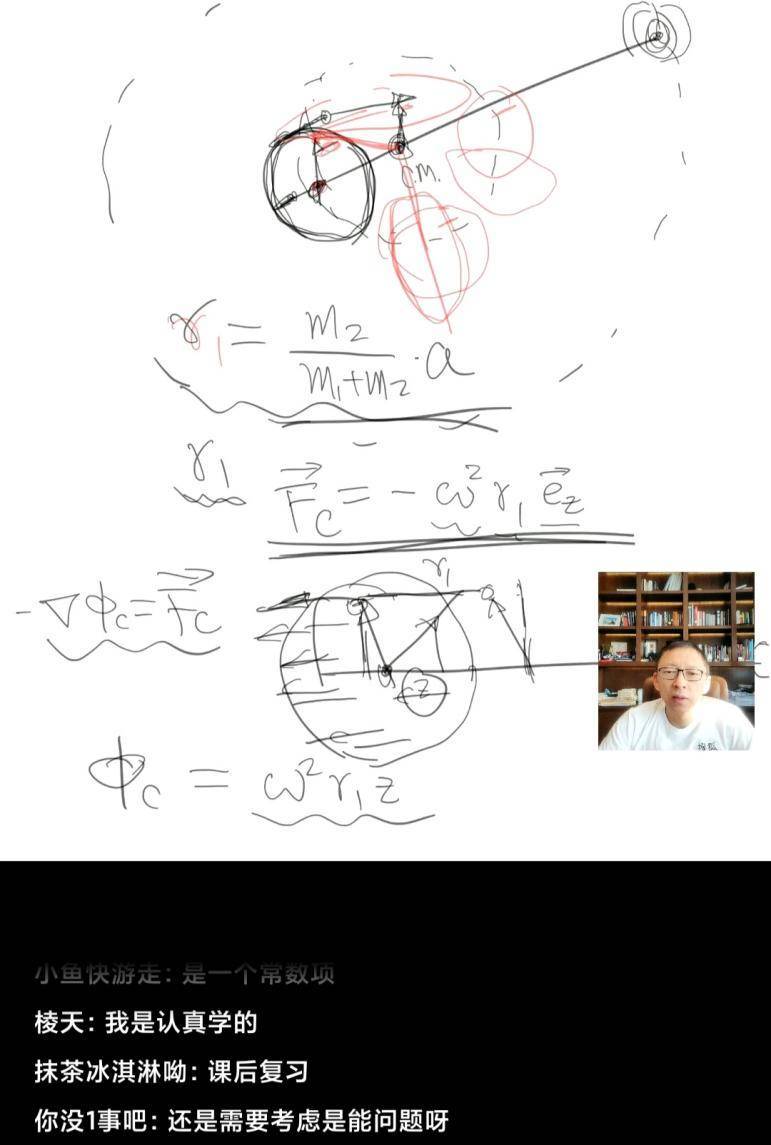 C.M.
r₁ = m₂/(m₁+m₂) · a
r₁
F⃗c = - ω² r₁ e⃗z
r₁
-∇ϕc = F⃗c
z
ϕc = ω² r₁ z
小鱼快游走：是一个常数项
棱天：我是认真学的
抹茶冰淇淋呦：课后复习
你没1事吧：还是需要考虑是能问题呀